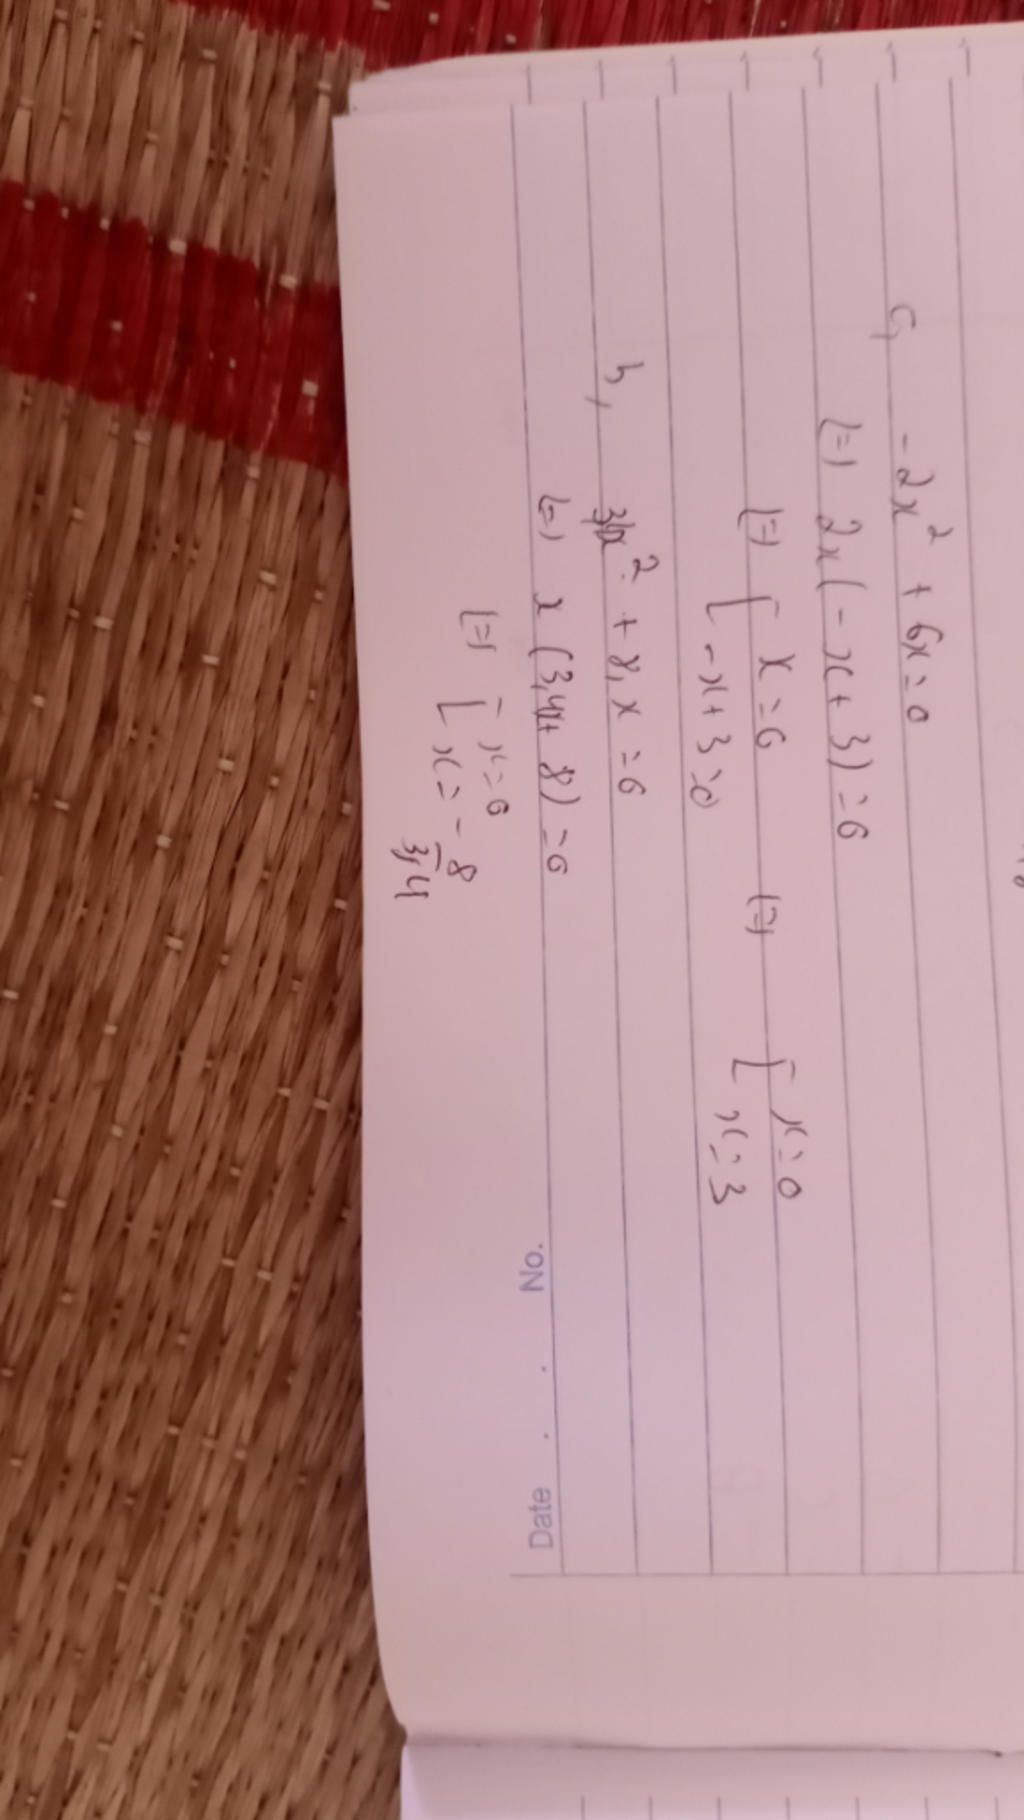 c, -2x² + 6x = 0
(=) 2x(-x + 3) = 0
(=) [ x = 0 (=) [ x = 0
-x + 3 = 0 x = 3
b, 3,4x² + 8,x = 0
(=) x (3,4x + 8) = 0
(=) [ x = 0
x = - 8/3,4
Date . . No.